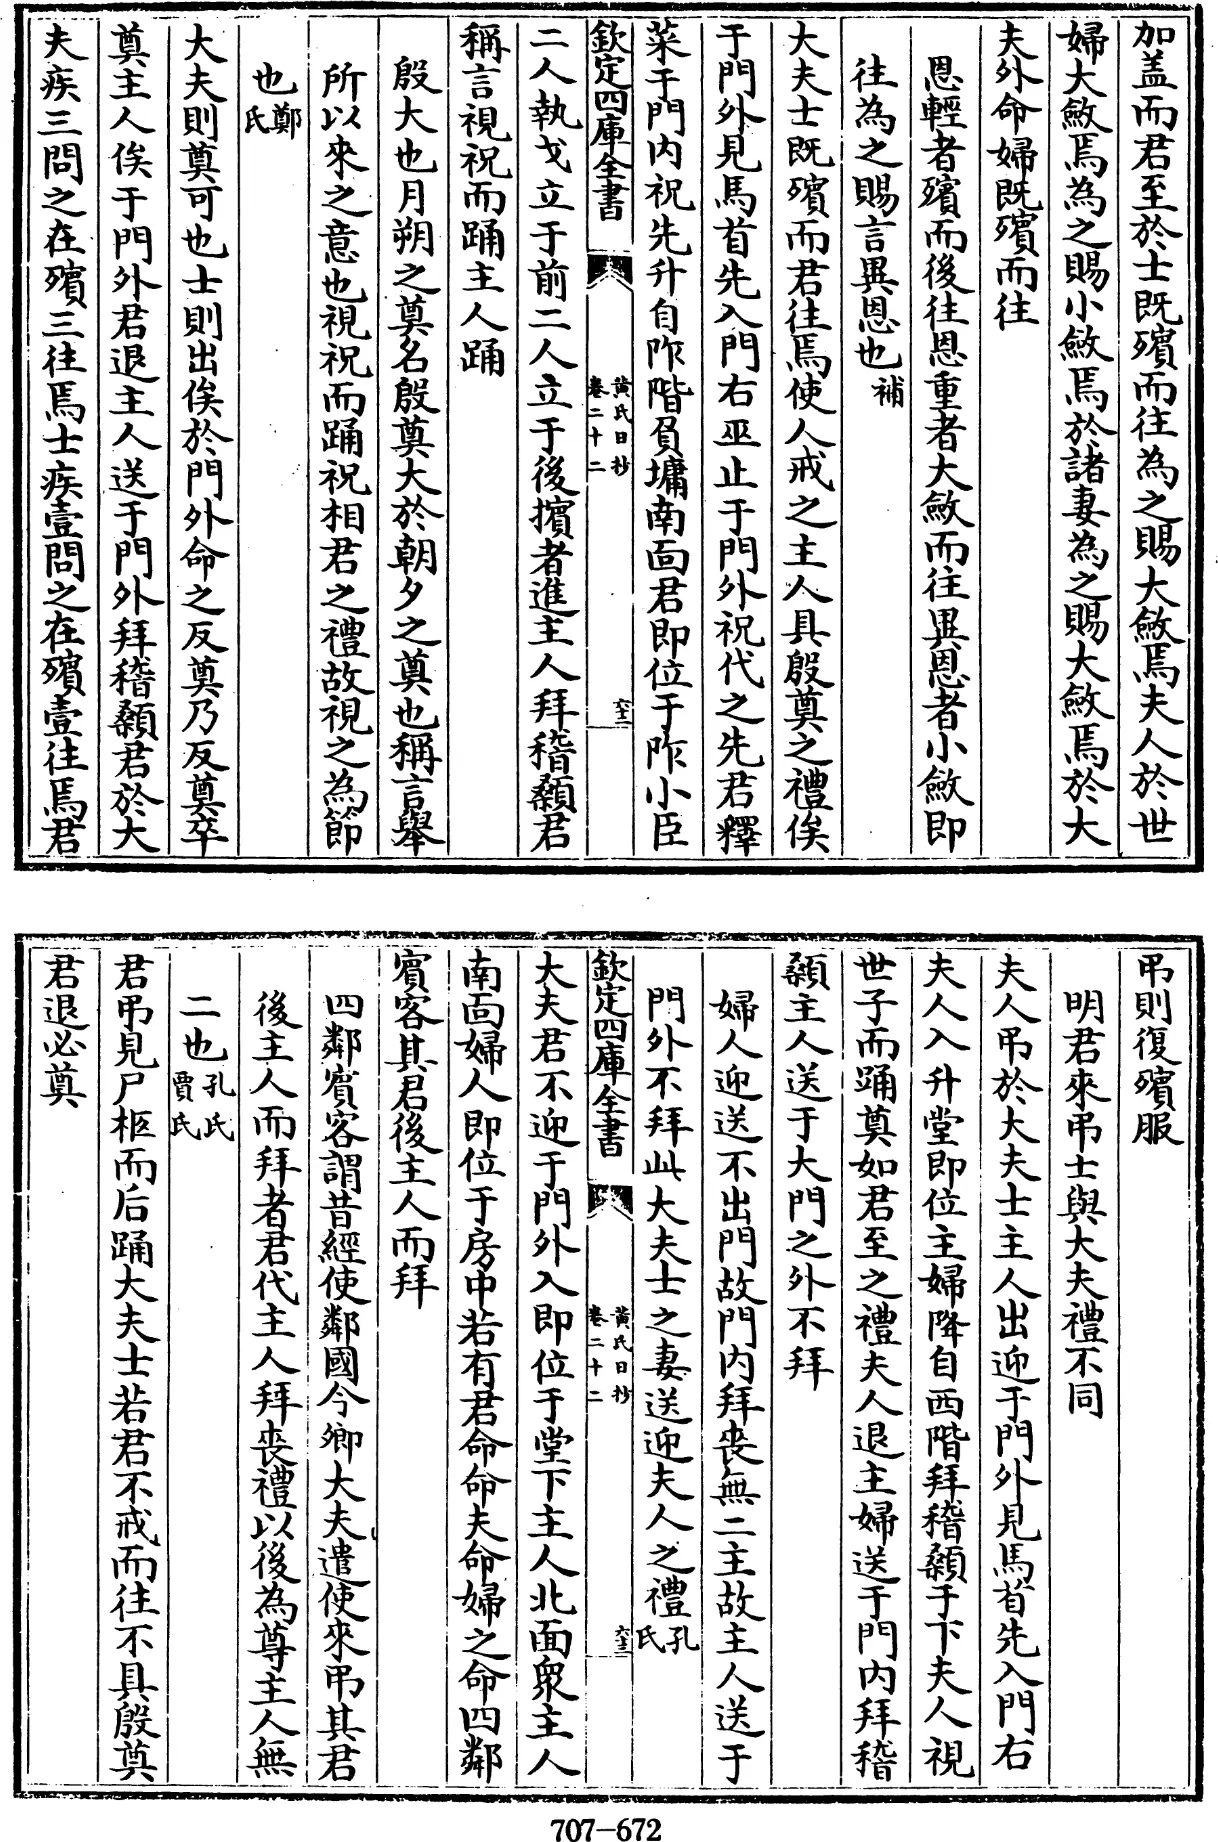 加蓋而君至於士既殯而往為之賜大斂焉夫人於世
婦大斂焉為之賜小斂焉於諸妻為之賜大斂焉於大
夫外命婦既殯而往
恩輕者殯而後往恩重者大斂而往異恩者小斂即
往為之賜言異恩也補
大夫士既殯而君往焉使人戒之主人具殷奠之禮俟
于門外見馬首先入門右巫止于門外祝代之先君釋
菜于門内祝先升自阼階負墉南面君即位于阼小臣
欽定四庫全書
黄氏日抄
卷二十二
二人執戈立于前二人立于後擯者進主人拜稽顙君
稱言視祝而踊主人踊
殷大也月朔之奠名殷奠大於朝夕之奠也稱言舉
所以來之意也視祝而踊祝相君之禮故視之為節
也鄭
氏
大夫則奠可也士則出俟於門外命之反奠乃反奠卒
奠主人俟于門外君退主人送于門外拜稽顙君於大
夫疾三問之在殯三往焉士疾壹問之在殯壹往焉君
弔則復殯服
明君來弔士與大夫禮不同
夫人弔於大夫士主人出迎于門外見馬首先入門右
夫人入升堂即位主婦降自西階拜稽顙于下夫人視
世子而踊奠如君至之禮夫人退主婦送于門内拜稽
顙主人送于大門之外不拜
婦人迎送不出門故門内拜喪無二主故主人送于
門外不拜此大夫士之妻送迎夫人之禮孔
氏
欽定四庫全書
黄氏日抄
卷二十二
大夫君不迎于門外入即位于堂下主人北面衆主人
南面婦人即位于房中若有君命命夫命婦之命四鄰
賓客其君後主人而拜
四鄰賓客謂昔經使鄰國今卿大夫遣使來弔其君
後主人而拜者君代主人拜喪禮以後為尊主人無
二也孔氏
賈氏
君弔見尸柩而后踊大夫士若君不戒而往不具殷奠
君退必奠
707-672